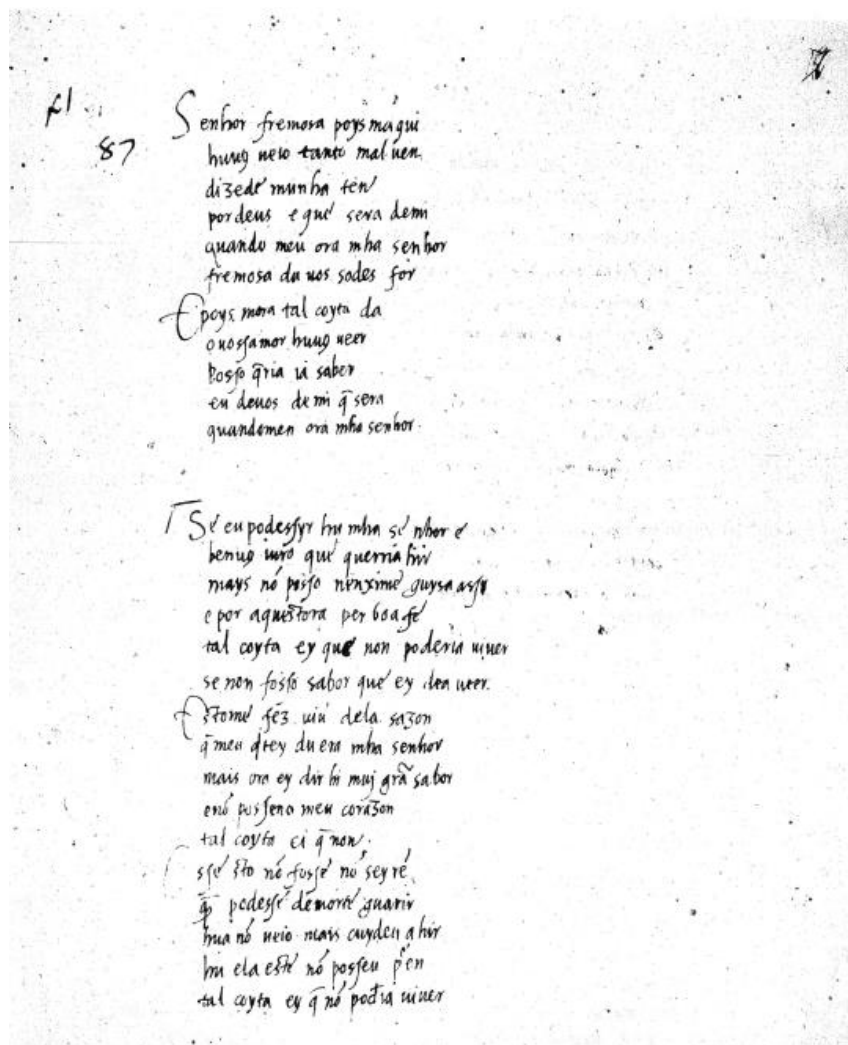 fl
87
Senhor fremosa poys máqui
huuo̧ ueio tanto mal uen.
dizede munha ten
por deus e que sera demi
quando meu ora mha senhor
fremosa du uos sodes for
E poys mora tal coyta da
o uossamor huuo̧ ueer
Posso q̄ria ia saber
eu deuos de mi q̄ sera
quandomeu ora mha senhor.
Se eu podessyr hu mha senhor e
benuo̧ iuro que querria hir
mays nó posso nenxime guysa assy
e por aquestora per boa fe
tal coyta ey que non poderia uiuer
se non fosso sabor que ey dea ueer.
Estome fez uiu dela sazon
q̄ meu q̄tey du era mha senhor
mais ora ey dir hi muj grã sabor
enó posseno meu corazon
tal coyta ei q̄ non.
sse sto nó fosse nó sey ré
podesse demorte guarir
hua nó ueio mais cuyden a hir
hu ela esté nó posseu pēn
tal coyta ey q̄ nó pod̄ia uiuer